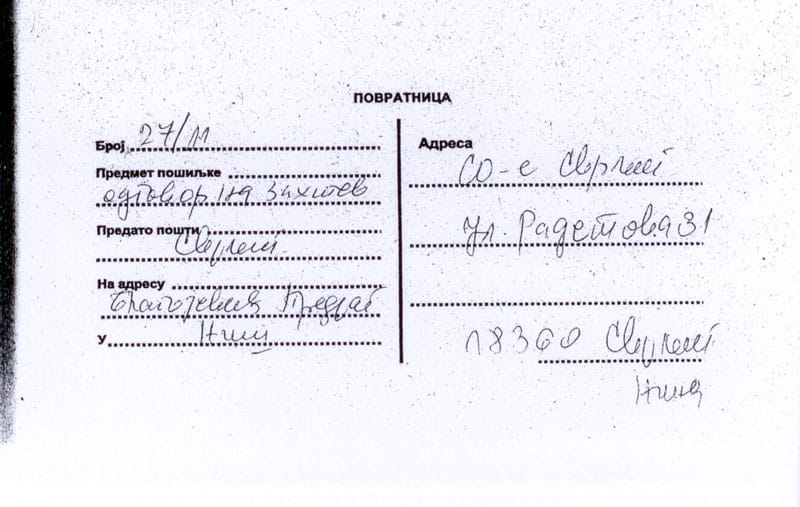 ПОВРАТНИЦА
Број 27/11
Предмет пошиљке
одговор на захтев
Предато пошти
Сврљиг
На адресу
Благојевић Предраг
У Ниш
Адреса
СО-е Сврљиг
Ул. Радетова 31
18360 Сврљиг